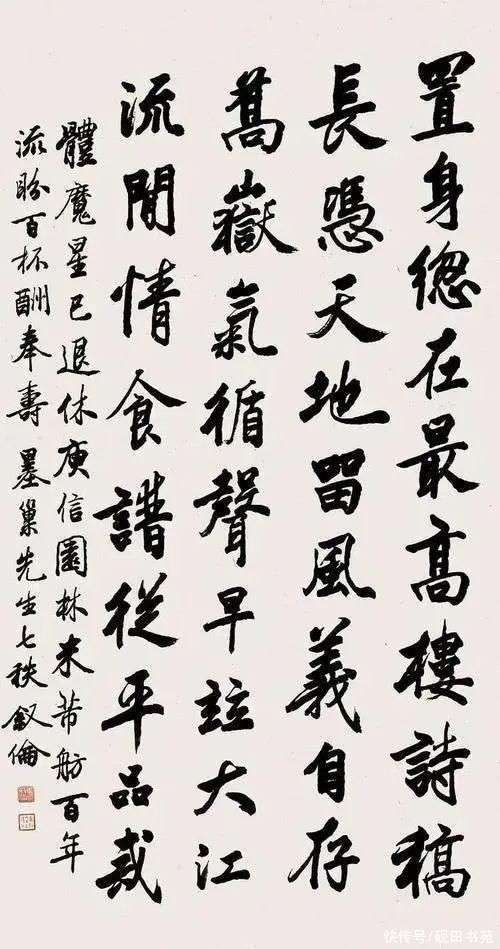 置身緫在最高樓詩稿
長憑天地留風義自存
嵩嶽氣循聲早竝大江
流閒情食譜從平品戒
體魔星已退休庾信園林米芾舫百年
流盼百杯酬奉壽 墨巢先生七秩 叙倫
快传号/砚田书苑